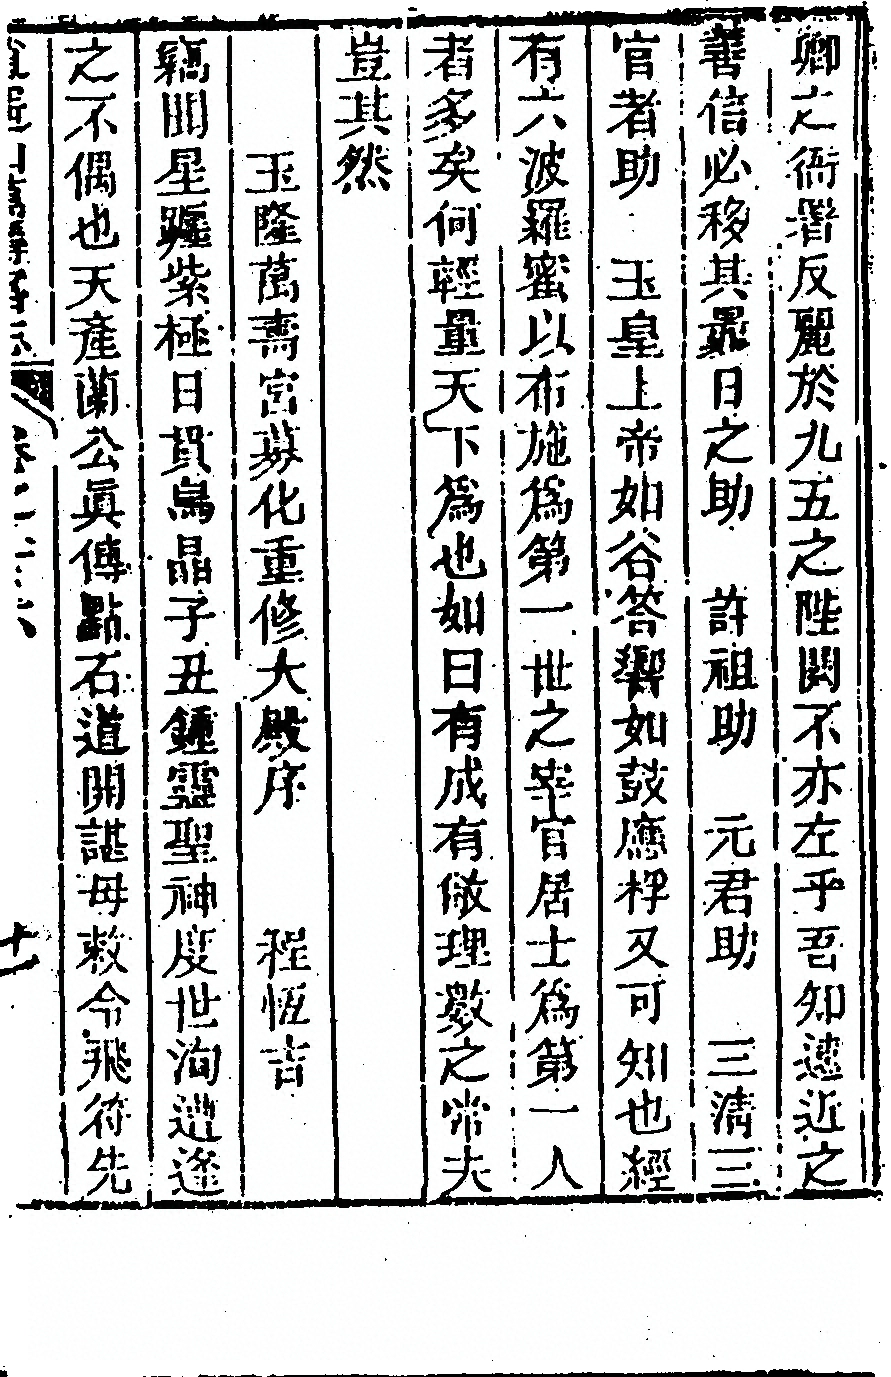 卿之衙署反麗於九五之陛闕不亦左乎吾知遠近之
善信必移其曩日之助　許祖助　元君助　三清三
官者助　玉皇上帝如谷答響如鼓應桴又可知也經
有六波羅蜜以布施為第一世之宰官居士為第一人
者多矣何輕量天下為也如曰有成有儆理數之常夫
豈其然
玉隆萬壽宮募化重修大殿序　程恆吉
竊聞星躔紫極日貫烏晶子丑鍾靈聖神度世洵遭逢
之不偶也天產蘭公真傳點石道開諶母敕令飛符先
逍遙山萬壽宮志　卷之十六
十一